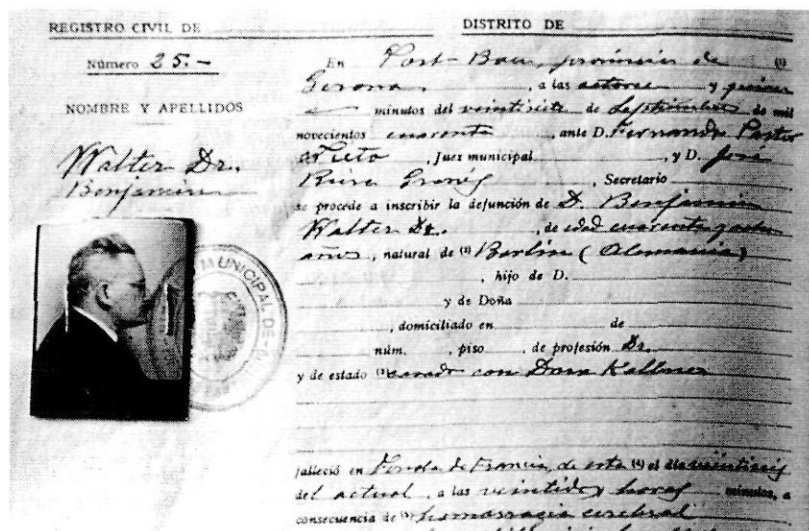 REGISTRO CIVIL DE
DISTRITO DE
Número 25.-
NOMBRE Y APELLIDOS
Walter Dr.
Benjamin
MUNICIPAL DE
En Port-Bou, provincia de (1)
Gerona, a las catorce y quince
minutos del veintisiete de Septiembre de mil
novecientos cuarenta, ante D. Fernando Pastor
Nieto, Juez municipal, y D. José
, Secretario
se procede a inscribir la defunción de D. Benjamin
Walter Dr., de edad cuarenta y ocho
años, natural de (2) Berlin (Alemania)
, hijo de D.
y de Doña
, domiciliado en de
núm. , piso , de profesión Dr.
y de estado (3) casado con Dora Kellner
falleció en Fonda de Francia, de esta (4) el día veintiseis
del actual, a las veintidos horas minutos, a
consecuencia de (5) hemorragia cerebral